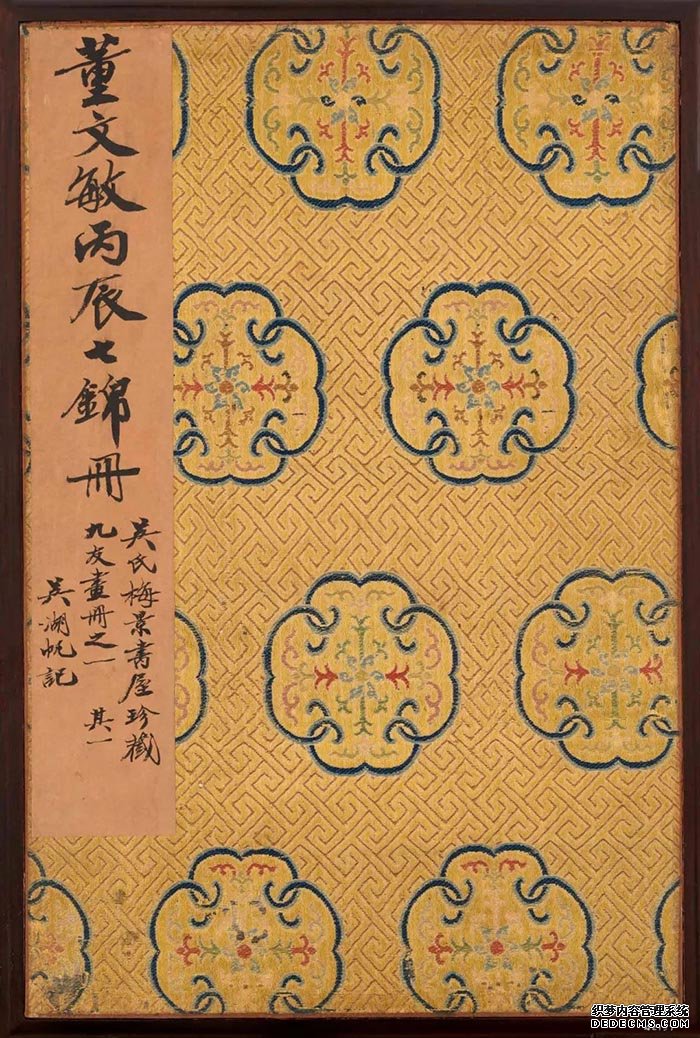 董文敏丙辰七錦冊
吳氏梅景書屋珍藏
九友畫冊之一 其一
吳湖帆記
织梦内容管理系统
DEDECMS.COM